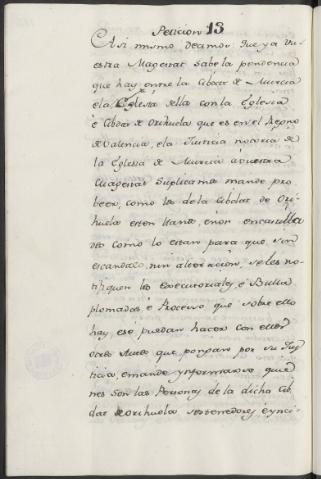 Peticion 13
Asi mismo decimos que ya vu-
estra Magestad sabe la pendencia
que hay entre la Cibdat de Murcia
e la Eglesia della con la Eglesia
e Cibdat de Orihuela que es en el Reyno
de Valencia, e la Justicia notoria de
la Eglesia de Murcia a vuestra
Magestad Suplicamos mande pro-
beer, como los de la Cibdat de Ori-
huela esten llana, e non
do como lo estan para que, sin
escandalo nin alteracion, se les no-
tifiquen las Executoriales, e Bulla
plomadas e Proceso que sobre ello
hay, e se puedan hacer con ellos
otros Autos que pongan por su Jus-
ticia, e mande ynformarse quie-
nes son las Personas de la dicha Cib-
dat de Orihuela e ynci-